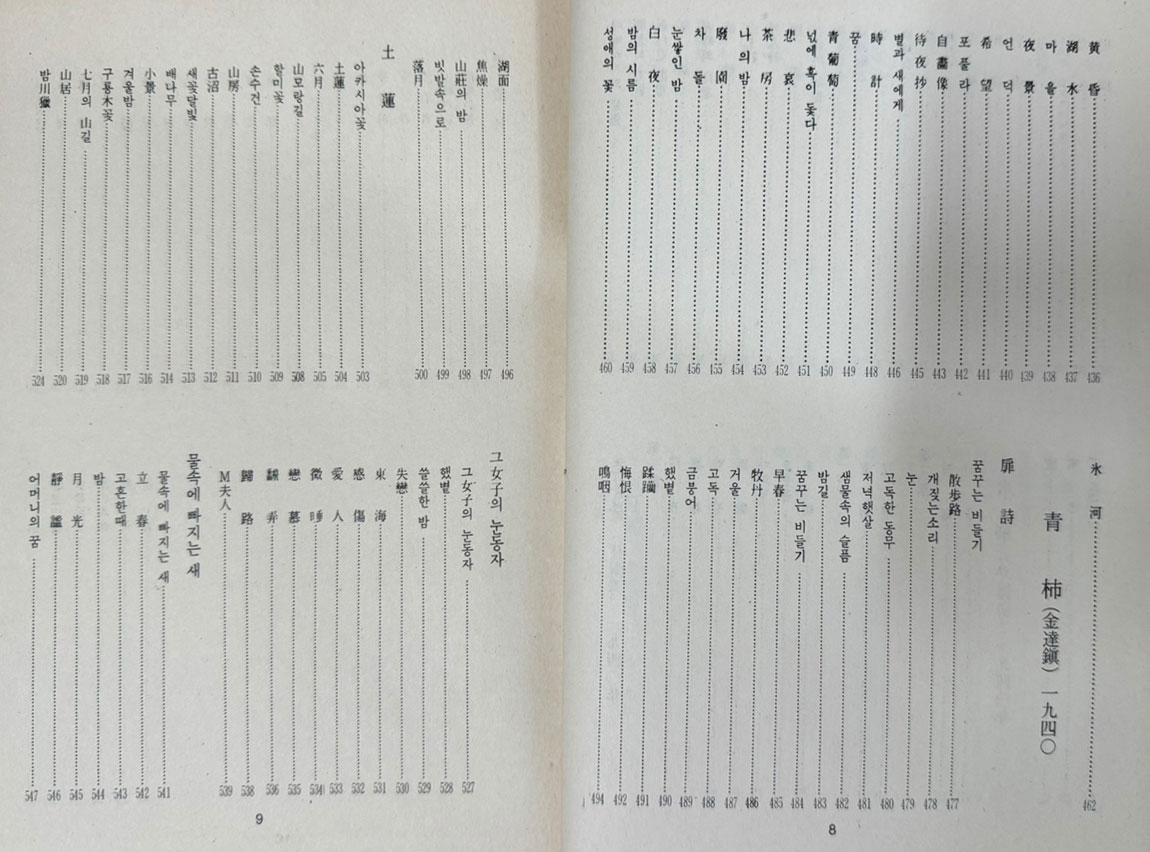 黃昏 436
湖水 437
마을 438
夜景 439
언덕 440
希望 441
포플라 442
自畫像 443
待夜抄 445
별과 새에게 446
時計 448
꿈 449
青葡萄 450
넋에 혹이 돋다 451
悲哀 452
茶房 453
나의 밤 454
廢園 455
차돌 456
눈쌓인 밤 457
白夜 458
밤의 시름 459
성애의 꽃 460
氷河 462
青柿(金達鎭) 一九四〇
扉詩
꿈꾸는 비들기
散歩路 477
개짖는소리 478
눈 479
고독한 동무 480
저녁햇살 481
샘물속의 슬픔 482
밤길 483
꿈꾸는 비들기 484
早春 485
牧丹 486
거울 487
고독 488
금붕어 489
햇볕 490
蹂躙 491
悔恨 492
嗚咽 494
8
湖面 496
焦燥 497
山莊의 밤 498
빗발속으로 499
落月 500
土蓮
아카시아꽃 503
土蓮 504
六月 505
山모랑길 508
할미꽃 509
손수건 510
山房 511
古沼 512
새꽃달빛 513
배나무 514
小景 516
겨울밤 517
구룡木꽃 518
七月의 山길 519
山居 520
밤川獵 524
그女子의 눈동자
그女子의 눈동자 527
햇볕 528
쓸쓸한 밤 529
失戀 530
東海 531
感傷 532
愛人 533
微睡 534
戀慕 535
弄 536
歸路 538
M夫人 539
물속에 빠지는 새
물속에 빠지는 새 541
立春 542
고흔한때 543
밤 544
月光 545
靜謐 546
어머니의 꿈 547
9